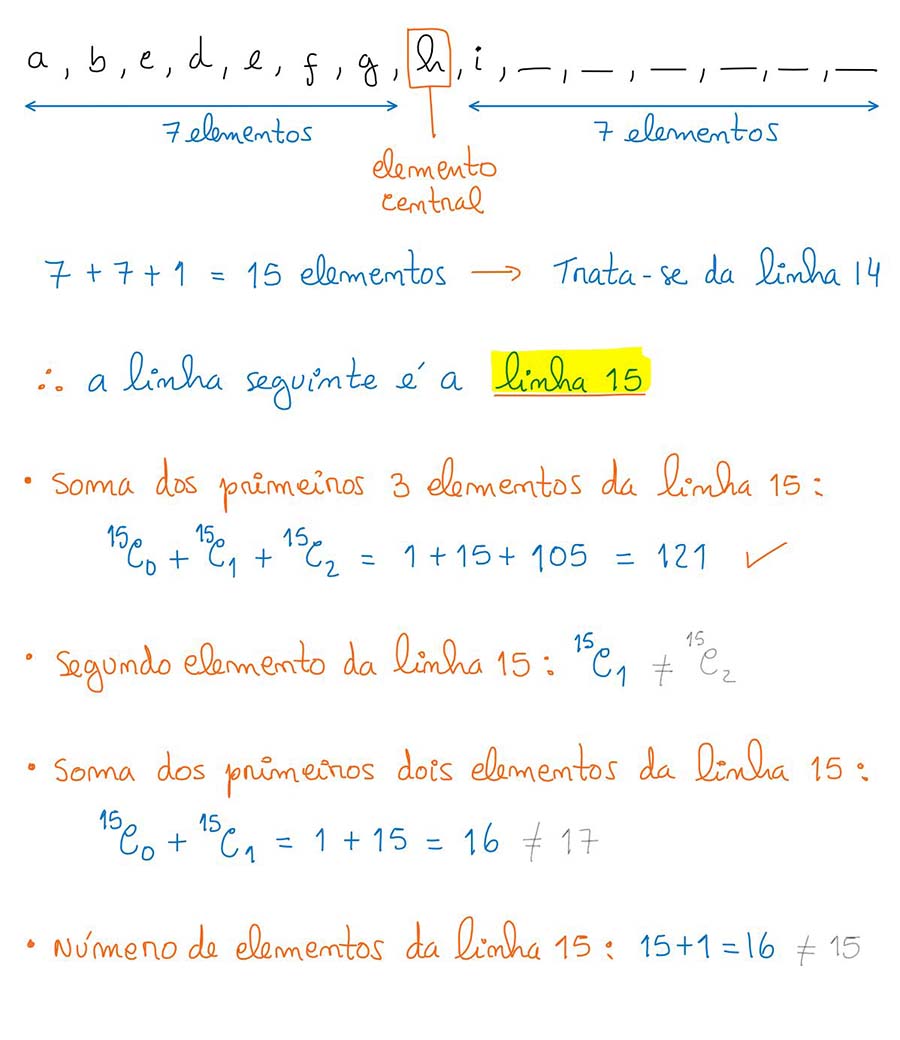 a, b, c, d, e, f, g, h, i, —, —, —, —, —, —
7 elementos 7 elementos
elemento
central
7 + 7 + 1 = 15 elementos → Trata-se da linha 14
∴ a linha seguinte é a linha 15
• Soma dos primeiros 3 elementos da linha 15:
¹⁵C₀ + ¹⁵C₁ + ¹⁵C₂ = 1 + 15 + 105 = 121 ✓
• Segundo elemento da linha 15: ¹⁵C₁ ≠ ¹⁵C₂
• Soma dos primeiros dois elementos da linha 15:
¹⁵C₀ + ¹⁵C₁ = 1 + 15 = 16 ≠ 17
• Número de elementos da linha 15: 15+1=16 ≠ 15